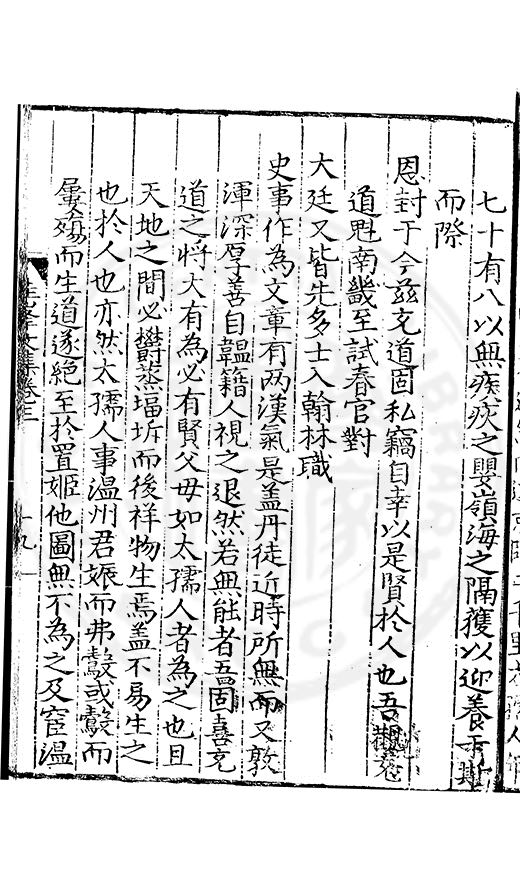 七十有八以無疾疢之嬰嶺海之隔獲以迎養于斯
而際
恩封于今兹克道固私竊自幸以是賢於人也吾觀克
道魁南畿至試春官對
大廷又皆先多士入翰林職
史事作為文章有两漢氣是盖丹徒近時所無而又敦
渾深厚善自韞籍人視之退然若無能者吾固喜克
道之将大有為必有賢父母如太孺人者為之也且
天地之間必欝蒸堛坼而後祥物生焉盖不易生之
也於人也亦然太孺人事温州君娠而弗鷇或鷇而
𭺗殤而生道遂絕至於置姬他圖無不為之及窆温
文集卷三
十九